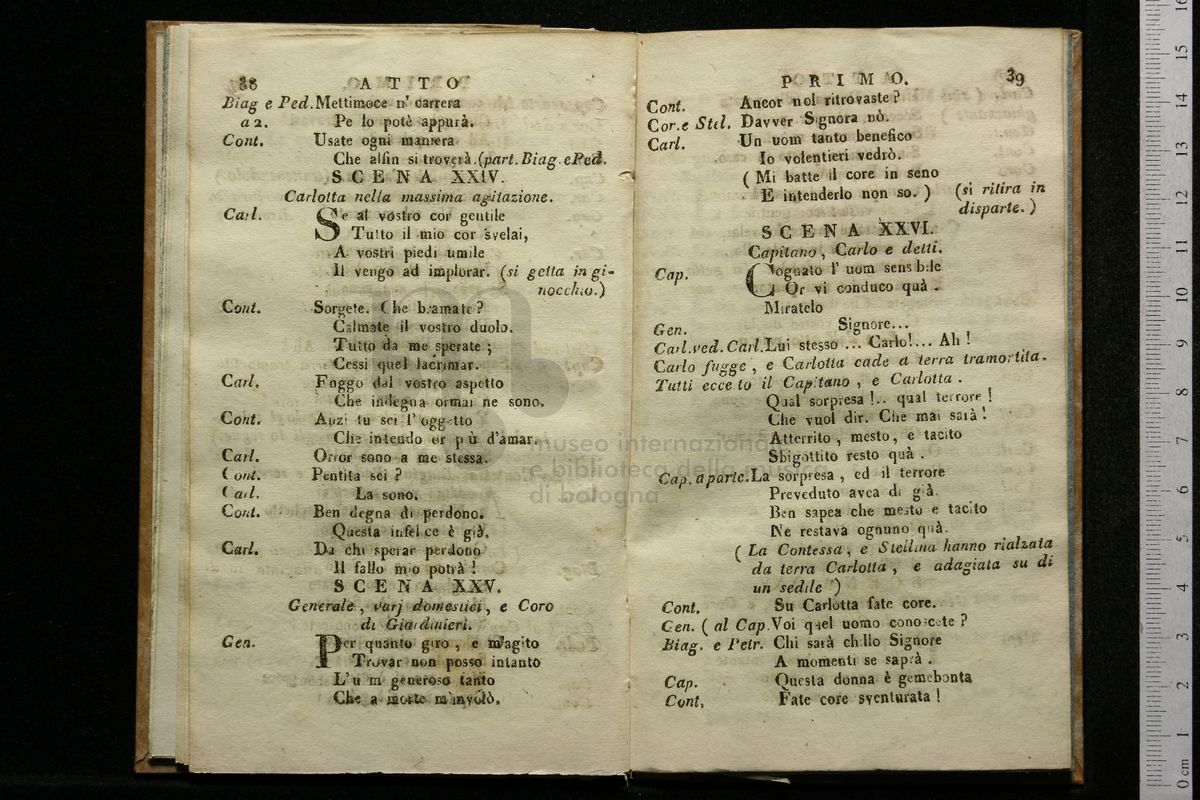 38 ATTO
Biag e Ped. Mettimoce n' carrera
a 2. Pe lo potè appurà.
Cont. Usate ogni maniera
Che alfin si troverà. (part. Biag. e Ped.
SCENA XXIV.
Carlotta nella massima agitazione.
Carl. Se al vostro cor gentile
Tutto il mio cor svelai,
A vostri piedi umile
Il vengo ad implorar. (si getta in gi-
nocchio.)
Cont. Sorgete. Che bramate?
Calmate il vostro duolo.
Tutto da me sperate;
Cessi quel lacrimar.
Carl. Fuggo dal vostro aspetto
Che indegna ormai ne sono.
Cont. Anzi tu sei l' oggetto
Che intendo or più d'amar.
Carl. Orror sono a me stessa.
Cont. Pentita sei?
Carl. La sono.
Cont. Ben degna di perdono.
Questa infelice è già.
Carl. Da chi sperar perdono
Il fallo mio potrà!
SCENA XXV.
Generale, varj domestici, e Coro
di Giardinieri.
Gen. Per quanto giro, e m'agito
Trovar non posso intanto
L'uom generoso tanto
Che a morte m'involò.
PRIMO. 39
Cont. Ancor nol ritrovaste?
Cor. e Stel. Davver Signora nò.
Carl. Un uom tanto benefico
Io volentieri vedrò.
(Mi batte il core in seno
E intenderlo non so.) (si ritira in
disparte.)
SCENA XXVI.
Capitano, Carlo e detti.
Cap. Cognato l' uom sensibile
Or vi conduco quà.
Miratelo
Gen. Signore...
Carl. ved. Carl. Lui stesso ... Carlo!... Ah!
Carlo fugge, e Carlotta cade a terra tramortita.
Tutti eccetto il Capitano, e Carlotta.
Qual sorpresa!.. qual terrore!
Che vuol dir. Che mai sarà!
Atterrito, mesto, e tacito
Sbigottito resto quà.
Cap. a parte. La sorpresa, ed il terrore
Preveduto avea di già.
Ben sapea che mesto e tacito
Ne restava ognuno quà.
(La Contessa, e Stellina hanno rialzata
da terra Carlotta, e adagiata su di
un sedile)
Cont. Su Carlotta fate core.
Gen. (al Cap. Voi quel uomo conoscete?
Biag. e Petr. Chi sarà chillo Signore
A momenti se saprà.
Cap. Questa donna è gemebonta
Cont. Fate core sventurata!
museo internazionale
e biblioteca della musica
di bologna
0 cm 1 2 3 4 5 6 7 8 9 10 11 12 13 14 15 16